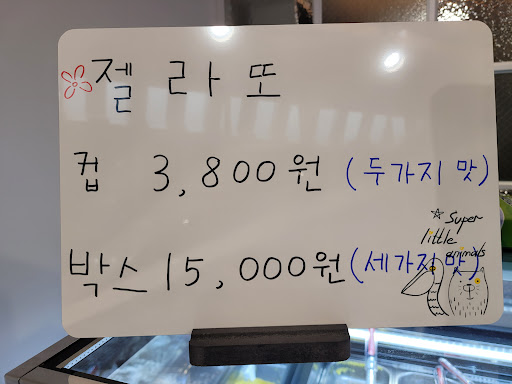 젤라또
컵 3,800원 (두가지 맛)
☆ Super
little
animals
박스 15,000원 (세가지 맛)